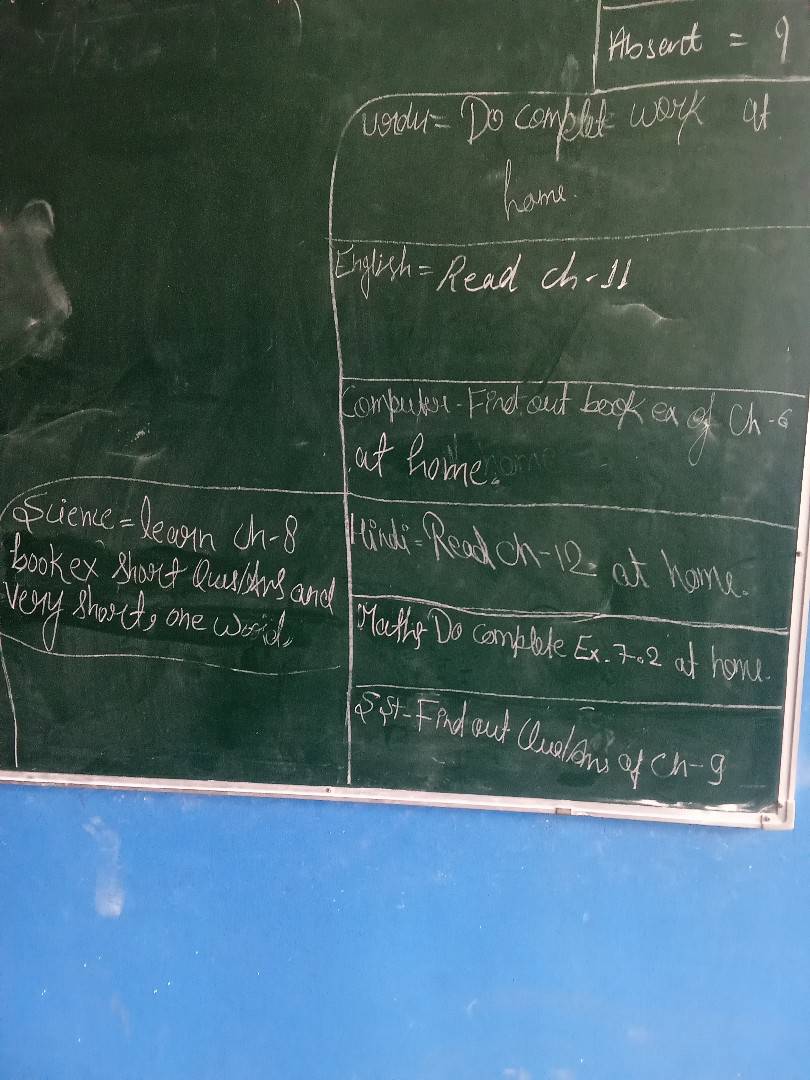 Absent = 9
Urdu = Do complet work at
home.
English = Read ch-11
Computer - Find out book ex of Ch-6
at home.
Hindi = Read ch-12 at home.
Maths Do complete Ex. 7.2 at home.
S.St - Find out Que/Ans of Ch-9
Science = learn ch-8
book ex short Ques/Ans and
very short, one word.